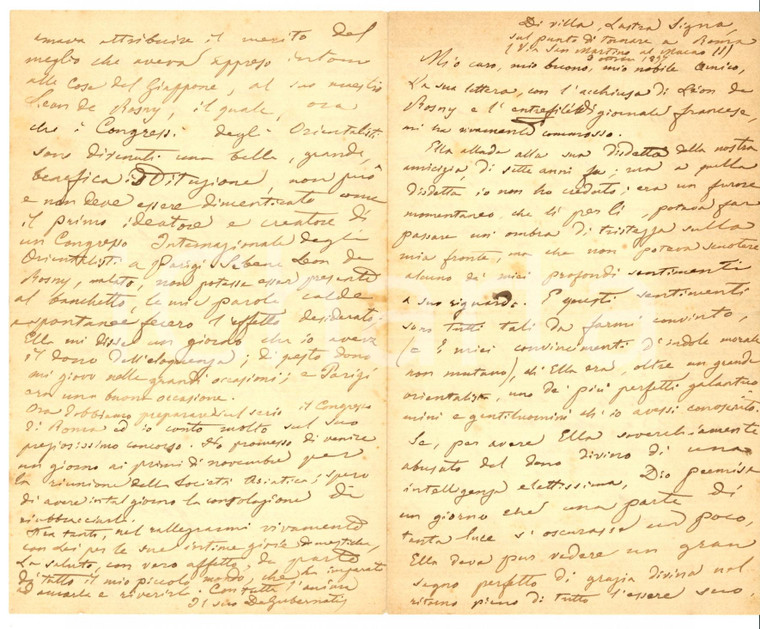 Di villa, Lastra Signa,
sul punto di tornare a Roma
(Via San Martino al Macao 11)
Mio caro, mio buono, mio nobile Amico,
La sua lettera, con l'acchiusa di Léon de
Rosny e l'entrefilet di giornale francese,
mi ha vivamente commosso.
Ella allude alla sua disdetta della nostra
amicizia, di sette anni fa; ma a quella
disdetta io non ho creduto; era un furore
momentaneo, che lì per lì, poteva far
passare un'ombra di tristezza sulla
mia fronte, ma che non poteva scuotere
alcuno de' miei profondi sentimenti
a suo riguardo. E questi sentimenti
son tutti tali da farmi convinto,
(e i miei convincimenti d'indole morale
non mutano), ch'Ella era, oltre un grande
orientalista, uno de' più perfetti galantuo-
mini e gentiluomini ch'io avessi conosciuto.
Se, per avere Ella soverchiamente
abusato del dono divino di una
intelligenza elettissima, Dio permise
un giorno che una parte di
tanta luce s'oscurasse un poco,
Ella deve pur vedere un gran
segno perfetto di grazia divina nel
ritorno pieno di tutto l'essere suo.
amava attribuire il merito del
meglio che aveva appreso intorno
alle cose del Giappone, al suo maestro
Léon de Rosny, il quale, ora
che i Congressi degli Orientalisti
sono divenuti una bella, grande,
benefica istituzione, non può
e non deve essere dimenticato come
il primo ideatore e creatore di
un Congresso Internazionale degli
Orientalisti a Parigi. Sebbene Léon de
Rosny, malato, non potesse esser presente
al banchetto, le mie parole calde
e spontanee fecero l'effetto desiderato;
Ella mi disse un giorno che io aveva
il dono dell'eloquenza; di questo dono
mi giovo nelle grandi occasioni; e Parigi
era una buona occasione.
Ora dobbiamo preparare sul serio il Congresso
di Roma ed io conto molto sul suo
preziosissimo concorso. Ho promesso di venire
un giorno ai primi di novembre per
la riunione della Società Asiatica; spero
di avere in tal giorno la consolazione di
riabbracciarla.
Fra tanto, nel rallegrarmi vivamente
con Lei per le sue intime gioie domestiche,
La saluto, con vero affetto, da parte
di tutto il mio piccolo mondo, che ha imparato
ad amarla e riverirla. Con tutta l'anima
Il suo DeGubernatis